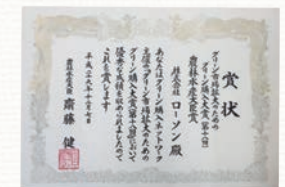 賞状
グリーン市場拡大のための
グリーン購入大賞(第十八回)
農林水産大臣賞
株式会社 ローソン殿
あなたはグリーン購入ネットワーク
主催のグリーン市場拡大のための
グリーン購入大賞(第十八回)において
優秀な成績を収められましたので
これを賞します
平成二十九年十二月七日
農林水産大臣 齋藤 健